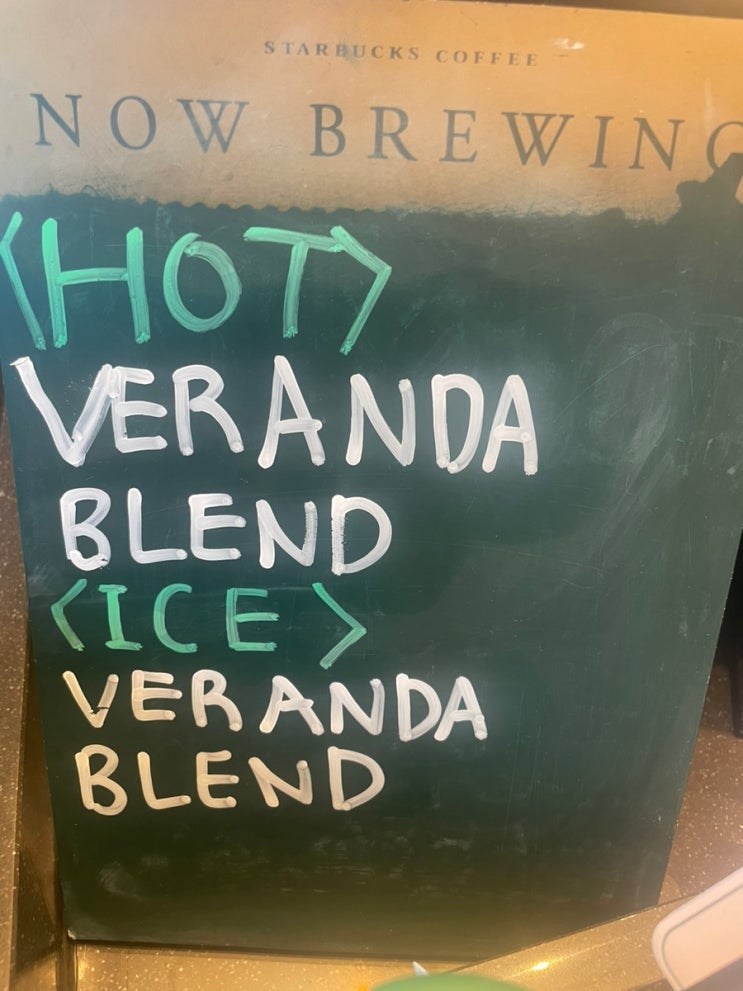 STARBUCKS COFFEE
NOW BREWING
<HOT>
VERANDA
BLEND
<ICE>
VERANDA
BLEND